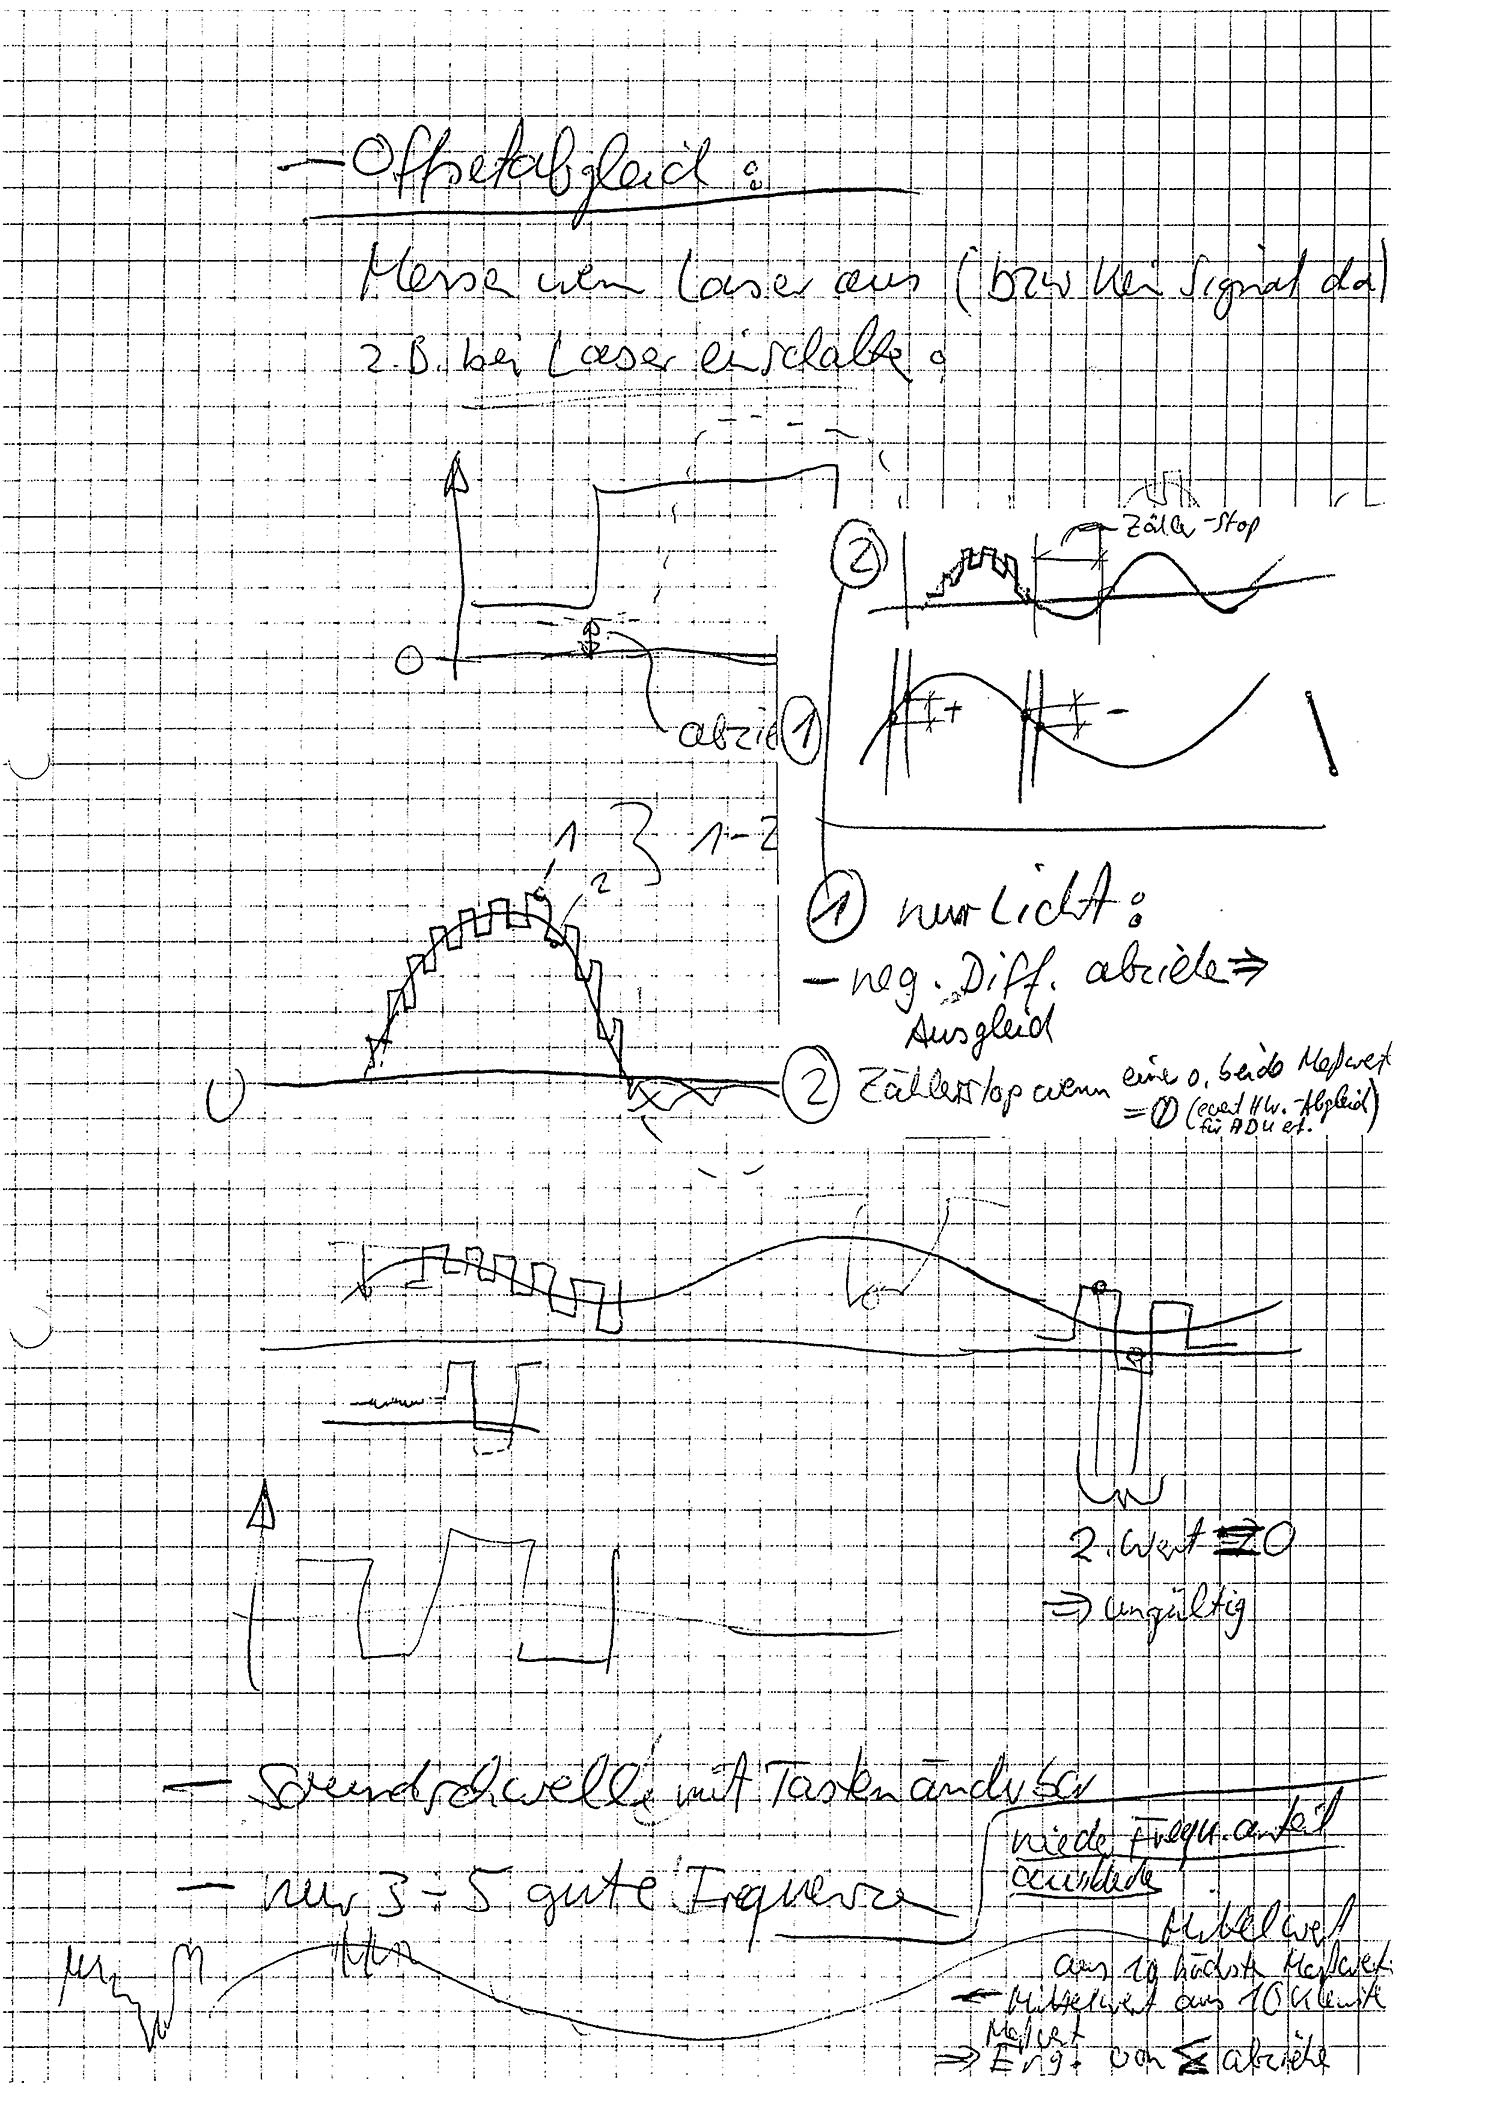 — Offsetabgleich:
Messe wenn Laser aus (bzw kein Signal da)
z.B. bei Laser einschalte:
0
abzie
② Zähler-Stop
① + -
1 } 1-2
2
① nur Licht:
— neg. Diff. abziehe ⇒
Ausgleich
0
② Zählerstop wenn einer o. beide Meßwert
= 0 (event Hw.-Abgleich)
für ADU erf.
2. Wert = 0
⇒ ungültig
— Soundschwelle mit Tasten änderbar
niede Frequ.anteil
ausblende
— nur 3÷5 gute Frequenze
Mittelwert
aus 10 höchste Meßwert
← Mittelwert aus 10 kleinste
Meßwert
⇒ Erg. von Σ abziehe